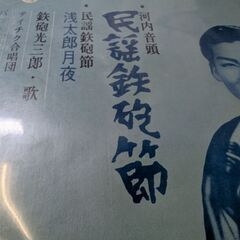 ・河内音頭
民謡鉄砲節
・民謡鉄砲節
浅太郎月夜
鉄砲光三郎・歌
テイチク合唱団